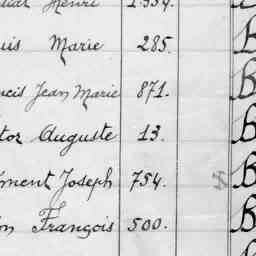 Henri 1.334.
uis Marie 285.
ncis Jean Marie 871.
tor Auguste 13.
ment Joseph 754.
on François 500.